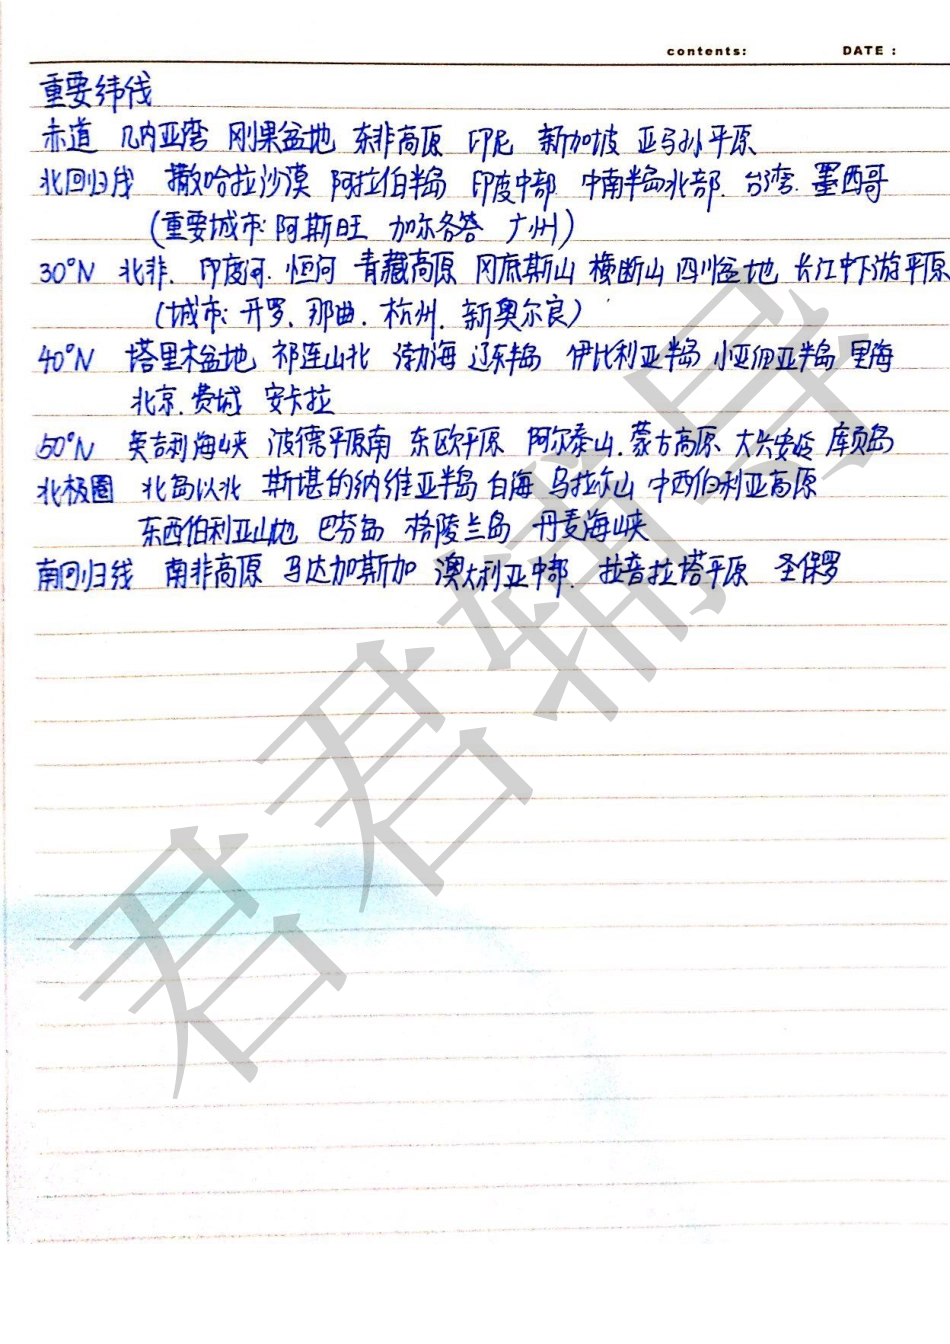 contents: DATE :
重要纬线
赤道 几内亚湾 刚果盆地 东非高原 印尼 新加坡 亚马孙平原
北回归线 撒哈拉沙漠 阿拉伯半岛 印度中部. 中南半岛北部. 台湾. 墨西哥
(重要城市: 阿斯旺 加尔各答 广州)
30°N 北非. 印度河. 恒河 青藏高原 冈底斯山 横断山 四川盆地 长江中下游平原
(城市: 开罗、那曲. 杭州. 新奥尔良)
40°N 塔里木盆地 祁连山北 渤海 辽东半岛 伊比利亚半岛 小亚细亚半岛 里海
北京. 费城 安卡拉
50°N 英吉利海峡 波德平原南 东欧平原 阿尔泰山. 蒙古高原 大兴安岭 库页岛
北极圈 北岛以北 斯堪的纳维亚半岛 白海 乌拉尔山 中西伯利亚高原
东西伯利亚山地 巴芬岛 格陵兰岛 丹麦海峡
南回归线 南非高原 马达加斯加 澳大利亚中部. 拉普拉塔平原 圣保罗
君君辅导